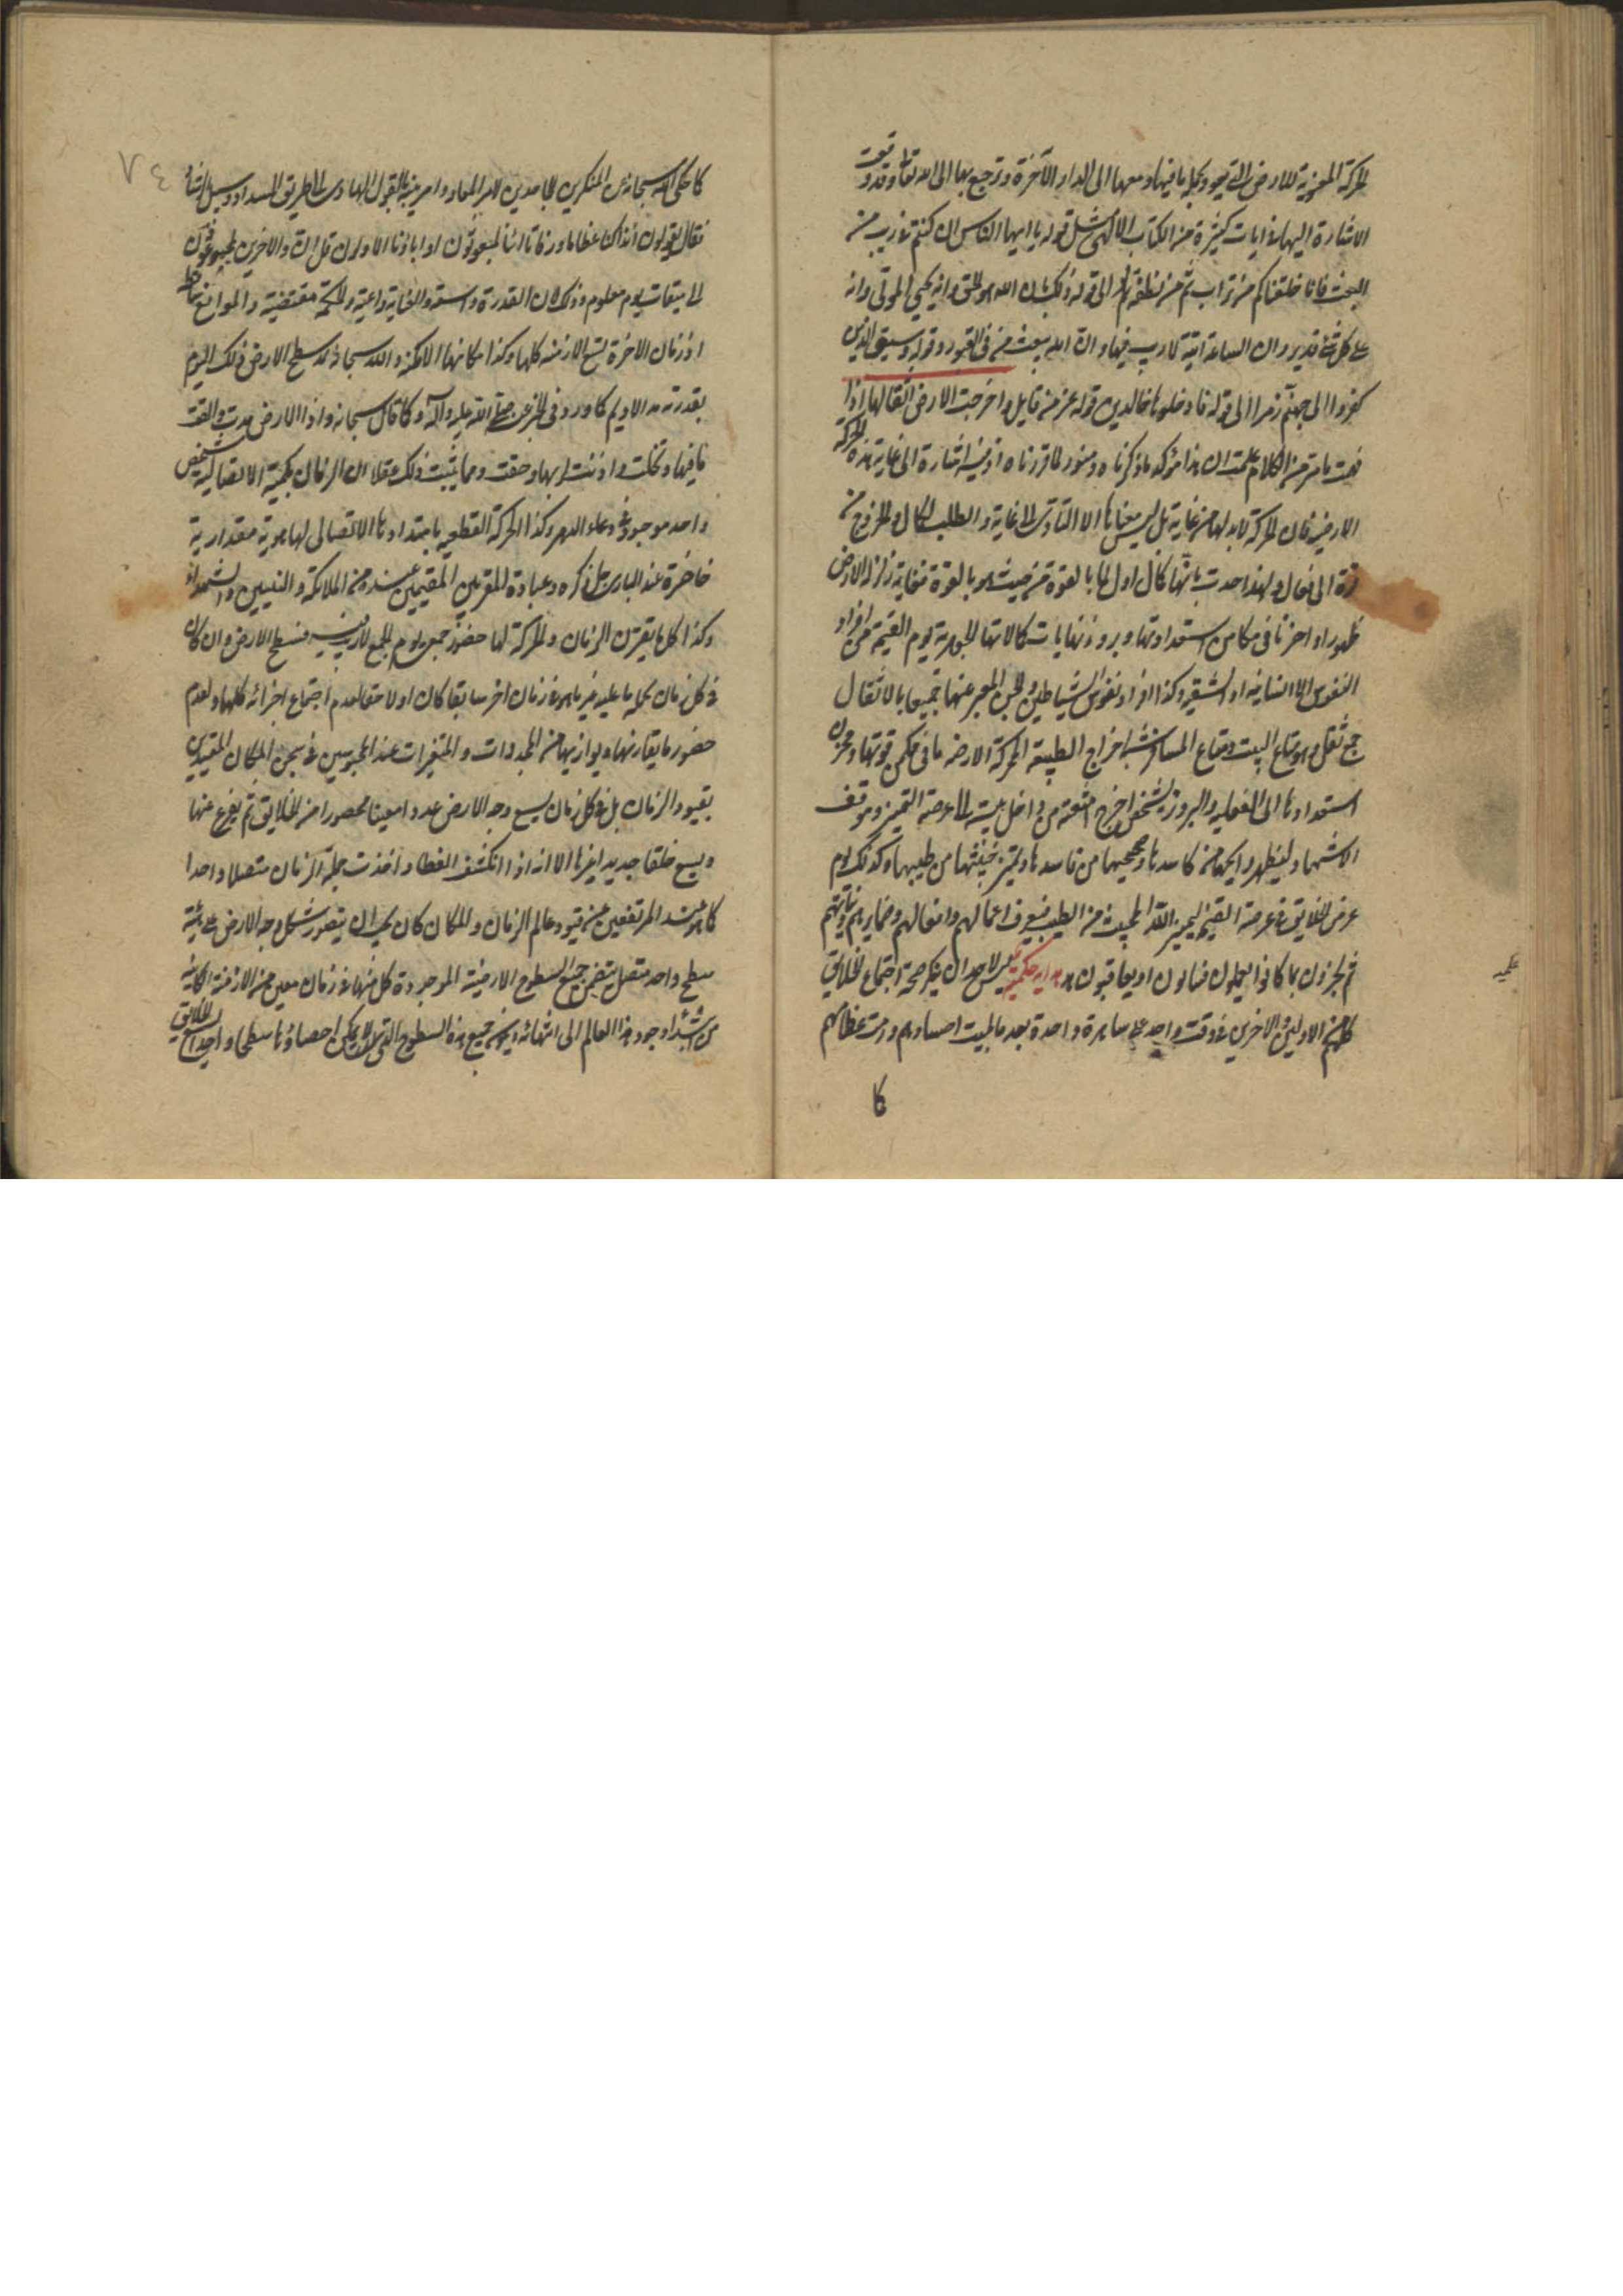 الحركة المعنوية للارض التى تتوجه وكلما فيها ومعها الى الدار الآخرة وترجع بها الى الله تعالى وقد وقعت
الاشارة اليها فى ايات كثيرة من الكتاب الالهى مثل قوله يا ايها الناس ان كنتم فى ريب من
البعث فانا خلقناكم من تراب ثم من نطفة الى قوله ذلك بان الله هو الحق وانه يحيى الموتى وانه
على كل شئ قدير وان الساعة اتية لا ريب فيها وان الله يبعث من فى القبور وقوله وسيق الذين
كفروا الى جهنم زمرا الى قوله فادخلوها خالدين قوله عز من قايل واخرجت الارض اثقالها اذا
فهمت ما مر من الكلام علمت ان هذا مؤكد ما ذكرناه ومنور لما قررناه اذ فيه اشارة الى غاية هذه الحركة
الارضية فان الحركة لا بد لها من غاية بل ليس معناها الا التأدى الى غاية والطلب لكمال والخروج من
قوة الى فعل ولهذا حدت بانها كمال اول لما بالقوة من حيث هو بالقوة فغاية زلزلة الارض
ظهور ما احرزنا فى مكامن استعداداتها وبروز نهايات كمالاتها الجوهرية يوم القيمة من افراد
النفوس الانسانية او الشقية وكذا افراد نفوس الشياطين والجن المعبر عنها جميعا بالاثقال
جمع ثقل وهو متاع البيت ومتاع المسافر شبه اخراج الطبيعة المحركة الارضه ما فى مكمن قوتها ومخزن
استعدادها الى الفعلية والبروز بشخص اخرج امتعته من داخل بيته الى عرصة التميز وموقف
الاشتهار ليظهر رايجها من كاسدها وصحيحها من فاسدها وليتميز خبيثها من طيبها وكذلك يوم
عرض الخلايق فى عرصة القيمة ليميز الله الخبيث من الطيب فيعرف اعمالهم وافعالهم وضمايرهم ونياتهم
ثم يجزون بما كانوا يعملون فيثابون او يعاقبون هداية حكمية ليس لاحد ان ينكر صحة اجتماع الخلايق
كلهم الاولين والاخرين فى وقت واحد على ساهرة واحدة بعد ما بليت اجسادهم ورمت عظامهم
كما
حكمية
٧٤
كما حكى الله سبحانه عن المنكرين الجاحدين لامر المعاد وامر نبيه بالقول الهادى الى طريق السداد وسبيل الرشاد
فقال يقولون أئذا كنا عظاما ورفاتا ائنا لمبعوثون او اباؤنا الاولون قل ان الاولين والاخرين لمجموعون
الى ميقات يوم معلوم وذلك لان القدرة واسعة والعناية داعية والحكمة مقتضية والموانع
اذ زمان الاخرة يسع الازمنه كلها وكذا مكانها الامكنه والله سبحانه يمد سطح الارض ذلك اليوم
بقدرته مد الاديم كما ورد فى الخبر عن صلى الله عليه وآله وكما قال سبحانه واذا الارض مدت والقت
ما فيها وتخلت واذنت لربها وحقت ومما يثبت ذلك عقلا ان الزمان بكميته الاتصالية شخص
واحد موجود فى وعاء الدهر وكذا الحركة القطعيه بامتدادها الاتصالى لها هوية مقدارية
حاضرة عند البارى جل ذكره وعباده المقربين المقيمين عنده من الملائكة والنبيين والشهداء
وكذا كل ما يقترن الزمان والحركة لها حضور جمعى يوم الجمع لا ريب فيه فسطح الارض وان كان
فى كل زمان بحكم ما عليه غير ما هو فى زمان اخر سابقا كان او لاحقا لعدم اجتماع اجزائه كلها ولعدم
حضور ما يقارنها ويوازيها من المجددات والمتغيرات عند المحبوسين فى سجن المكان المقيدين
بقيود الزمان بل فى كل زمان يسع وجه الارض عددا معينا محصورا من الخلايق ثم يفرغ عنها
ويسع خلقا جديدا غيرها الا انه اذا انكشف الغطا واخذت جملة الزمان متصلا واحدا
كما هو عند المرتفعين عن قيود عالم الزمان والمكان كان يمكن ان يتصور شكل وجه الارض على هيئة
سطح واحد متصل يتضمن جميع السطوح الارضية الموجودة كل منها فى زمان معين من الازمنة الكائنة
من ابتداء وجود هذا العالم الى انتهائه جميع هذه السطوح التى لا يمكن احصاؤها سطحا واحدا يسع الخلايق